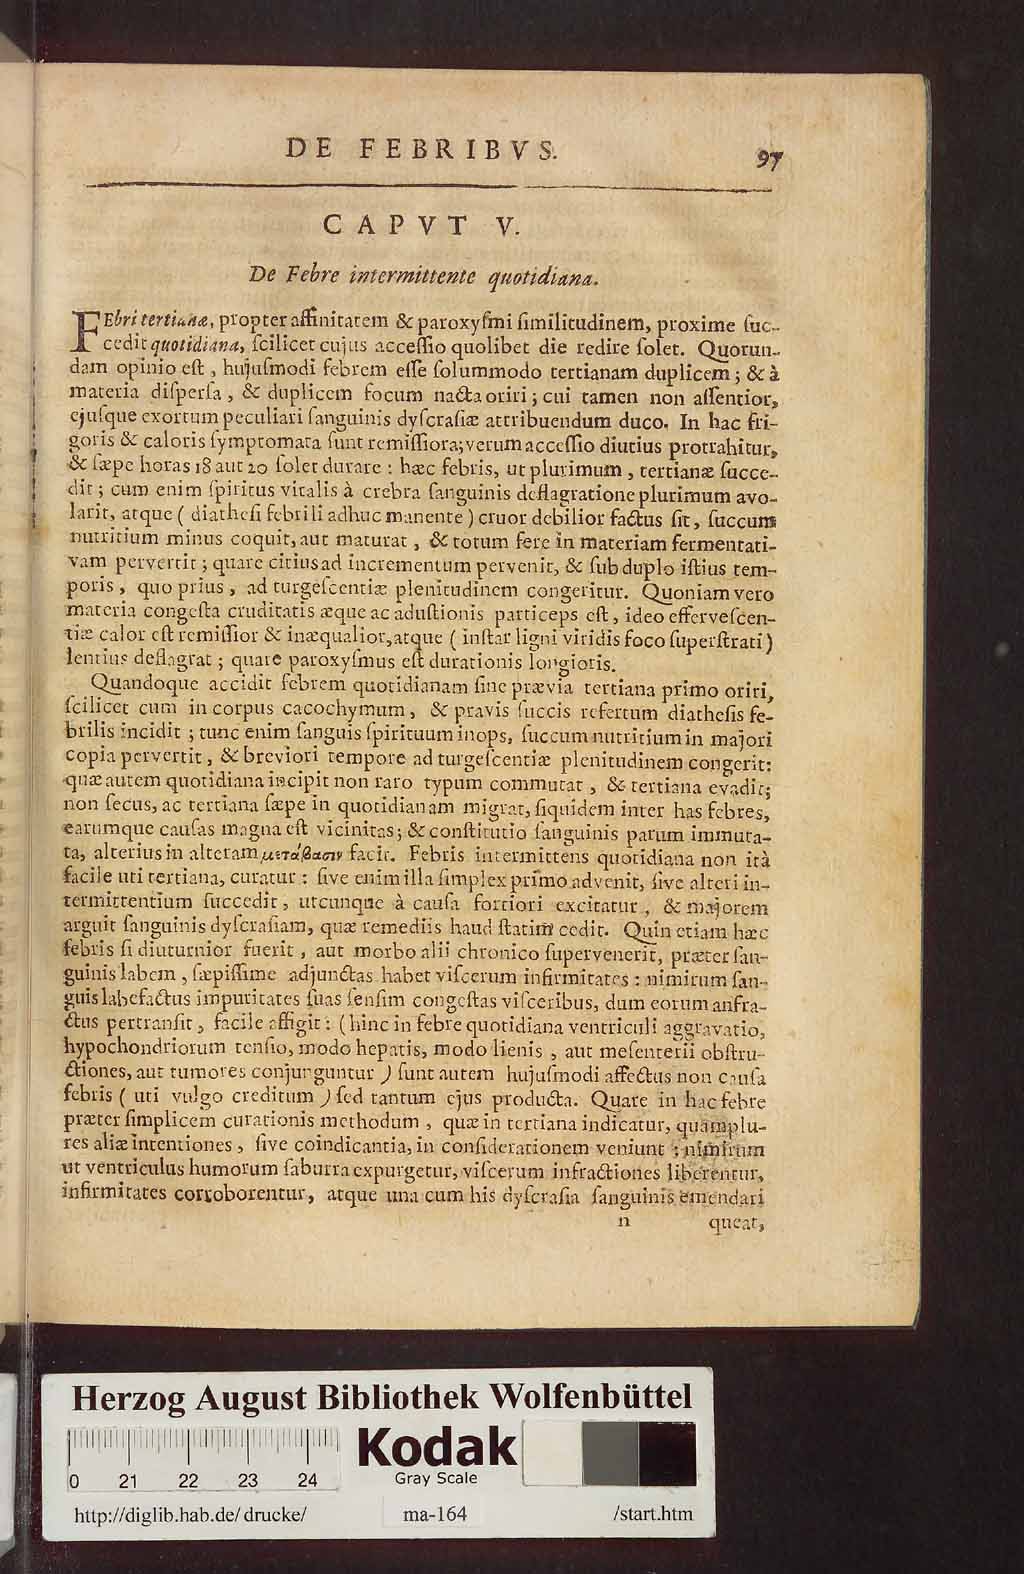 DE FEBRIBVS. 97
CAPVT V.
De Febre intermittente quotidiana.
FEbri tertianæ, propter affinitatem & paroxyſmi ſimilitudinem, proxime ſuc-
cedit quotidiana, ſcilicet cujus acceſſio quolibet die redire ſolet. Quorun-
dam opinio eſt, hujuſmodi febrem eſſe ſolummodo tertianam duplicem; & à
materia diſperſa, & duplicem focum nacta oriri; cui tamen non aſſentior,
ejuſque exortum peculiari ſanguinis dyſcraſiæ attribuendum duco. In hac fri-
goris & caloris ſymptomata ſunt remiſſiora; verum acceſſio diutius protrahitur,
& ſæpe horas 18 aut 20 ſolet durare: hæc febris, ut plurimum, tertianæ ſucce-
dit; cum enim ſpiritus vitalis à crebra ſanguinis deflagratione plurimum avo-
larit, atque (diatheſi febrili adhuc manente) cruor debilior factus ſit, ſuccum
nutritium minus coquit, aut maturat, & totum fere in materiam fermentati-
vam pervertit; quare citius ad incrementum pervenit, & ſub duplo iſtius tem-
poris, quo prius, ad turgeſcentiæ plenitudinem congeritur. Quoniam vero
materia congeſta cruditatis æque ac aduſtionis particeps eſt, ideo efferveſcen-
tiæ calor eſt remiſſior & inæqualior, atque (inſtar ligni viridis foco ſuperſtrati)
lentius deflagrat; quare paroxyſmus eſt durationis longioris.
Quandoque accidit febrem quotidianam ſine prævia tertiana primo oriri,
ſcilicet cum in corpus cacochymum, & pravis ſuccis refertum diatheſis fe-
brilis incidit; tunc enim ſanguis ſpirituum inops, ſuccum nutritium in majori
copia pervertit, & breviori tempore ad turgeſcentiæ plenitudinem congerit:
quæ autem quotidiana incipit non raro typum commutat, & tertiana evadit;
non ſecus, ac tertiana ſæpe in quotidianam migrat, ſiquidem inter has febres,
earumque cauſas magna eſt vicinitas; & conſtitutio ſanguinis parum immuta-
ta, alterius in alteram μετάβασιν facit. Febris intermittens quotidiana non ità
facile uti tertiana, curatur: ſive enim illa ſimplex primo advenit, ſive alteri in-
termittentium ſuccedit, utcunque à cauſa fortiori excitatur, & majorem
arguit ſanguinis dyſcraſiam, quæ remediis haud ſtatim cedit. Quin etiam hæc
febris ſi diuturnior fuerit, aut morbo alii chronico ſupervenerit, præter ſan-
guinis labem, ſæpiſſime adjunctas habet viſcerum infirmitates: nimirum ſan-
guis labefactus impuritates ſuas ſenſim congeſtas viſceribus, dum eorum anfra-
ctus pertranſit, facile affigit: (hinc in febre quotidiana ventriculi aggravatio,
hypochondriorum tenſio, modo hepatis, modo lienis, aut meſenterii obſtru-
ctiones, aut tumores conjunguntur) ſunt autem hujuſmodi affectus non cauſa
febris (uti vulgo creditum) ſed tantum ejus producta. Quare in hac febre
præter ſimplicem curationis methodum, quæ in tertiana indicatur, quamplu-
res aliæ intentiones, ſive coindicantia, in conſiderationem veniunt: nimirum
ut ventriculus humorum ſaburra expurgetur, viſcerum infractiones liberentur,
infirmitates corroborentur, atque una cum his dyſcraſia ſanguinis emendari
n queat,
Herzog August Bibliothek Wolfenbüttel
Kodak
Gray Scale
0 21 22 23 24
http://diglib.hab.de/drucke/ ma-164 /start.htm